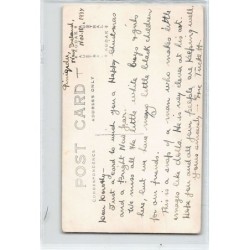 POST CARD
CORRESPONDENCE
ADDRESS ONLY
Dear Dorothy
Just a card to wish you a Happy Christmas
and a Bright New Year.
We miss all the little white boys & girls
here, but we have many little black children
for our friends.
This is a snap of a man who makes little
images like idols. He is very clever at his art.
Hope you and all your people are keeping well
Yours sincerely